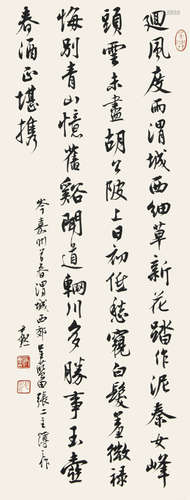 迴風度雨渭城西細草新花踏作泥秦女峰
頭雲未盡胡公陂上日初低愁窺白髮羞微祿
悔別青山憶舊谿聞道輞川多勝事玉壺
春酒正堪携
岑嘉州首春渭城西郊呈藍田張二主簿之作